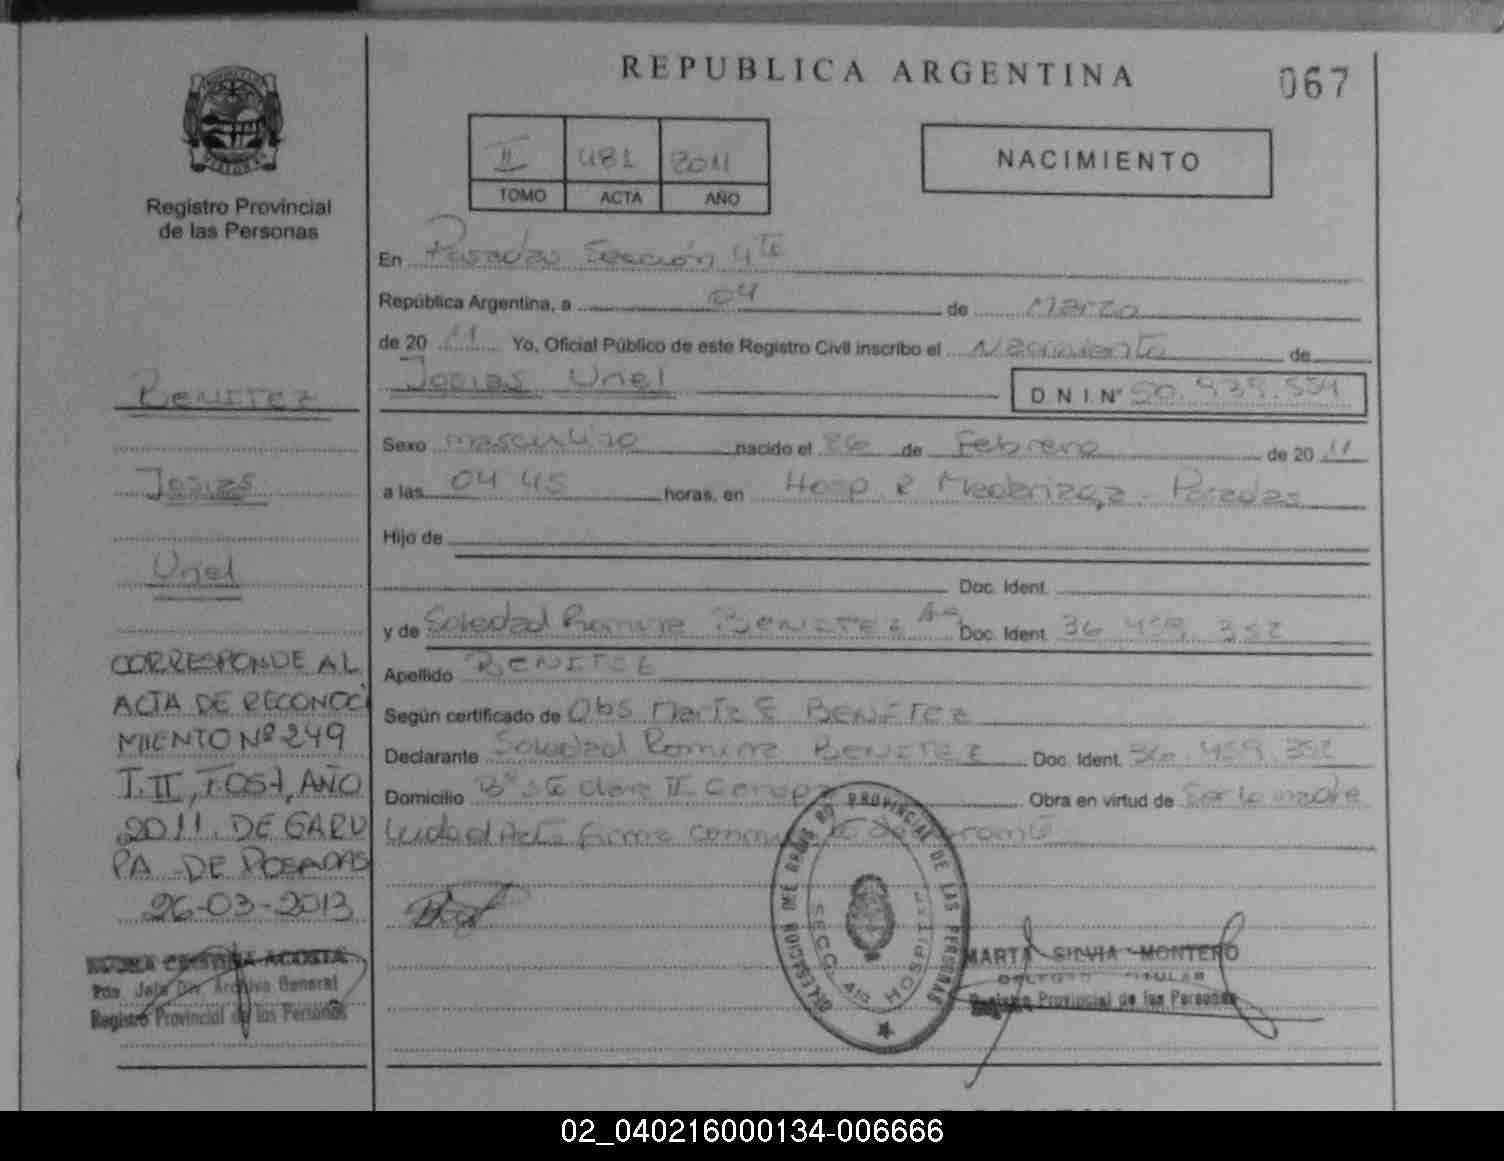 REPUBLICA ARGENTINA
067
II 481 2011
TOMO ACTA AÑO
NACIMIENTO
Registro Provincial
de las Personas
En Posadas Sección 4ta
República Argentina, a 04 de Marzo
de 20 11 Yo, Oficial Público de este Registro Civil inscribo el Nacimiento de
Josias Uriel D.N.I.Nº 50.939.554
Sexo masculino nacido el 26 de Febrero de 20 11
a las 04 45 horas, en Hosp. R Madariaga - Posadas
Hijo de
Doc. Ident.
y de Soledad Romina BENITEZ Doc. Ident. 36 459 352
Apellido BENITEZ
Según certificado de Obs Marta E BENITEZ
Declarante Soledad Romina BENITEZ Doc. Ident. 36.459.352
Domicilio Bº Sta Clara II Garupá Obra en virtud de Ser la madre
Leida el Acta firma conmigo la declarante
BENITEZ
Josias
Uriel
CORRESPONDE AL
ACTA DE RECONOCI
MIENTO Nº 249
T. II, Fº 57, AÑO
2011. DE GARU
PA - DE POSADAS
26-03-2013
CRISTINA ACOSTA
Jefe Div. Archivo General
Registro Provincial de las Personas
PROVINCIAL DE LAS PERSONAS
SECC. 4ta HOSPITAL
MARTA SILVIA MONTERO
TITULAR
Registro Provincial de las Personas
02_040216000134-006666